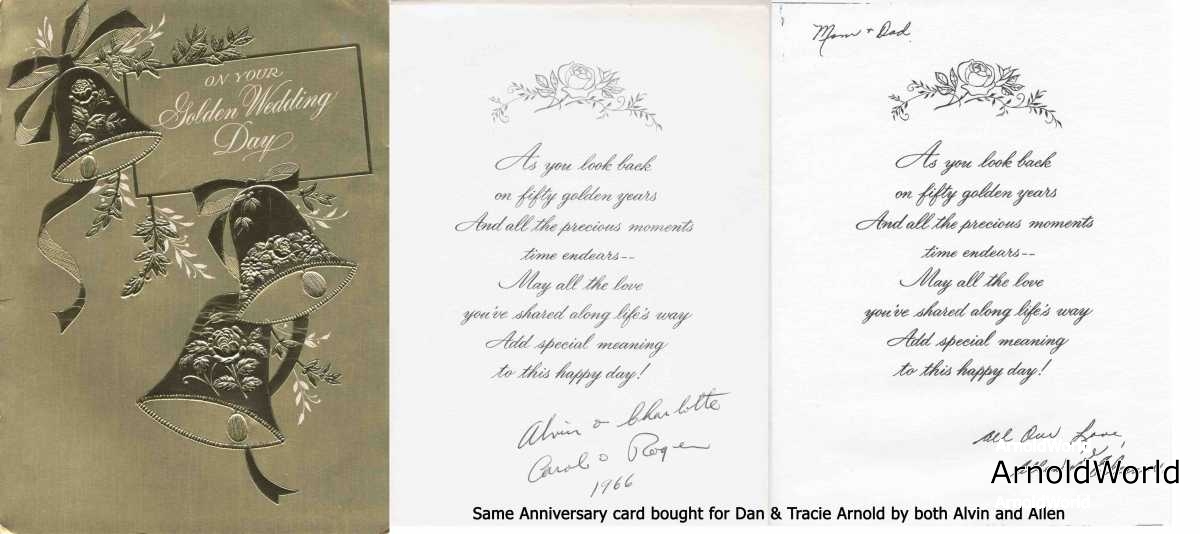 ON YOUR
Golden Wedding
Day
As you look back
on fifty golden years
And all the precious moments
time endears--
May all the love
you've shared along life's way
Add special meaning
to this happy day!
Alvin & Charlotte
Carol & Roger
1966
Mom + Dad
As you look back
on fifty golden years
And all the precious moments
time endears--
May all the love
you've shared along life's way
Add special meaning
to this happy day!
All Our Love,
ArnoldWorld
ArnoldWorld
ArnoldWorld
Same Anniversary card bought for Dan & Tracie Arnold by both Alvin and Allen